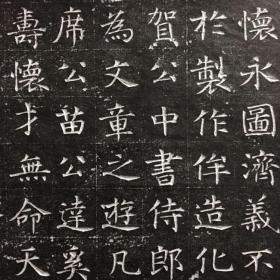 懷永圖濟義不
於製作侔造化
賀公中書侍郎
為文章之遊凡
席公苗公達奚
壽懷才無命天